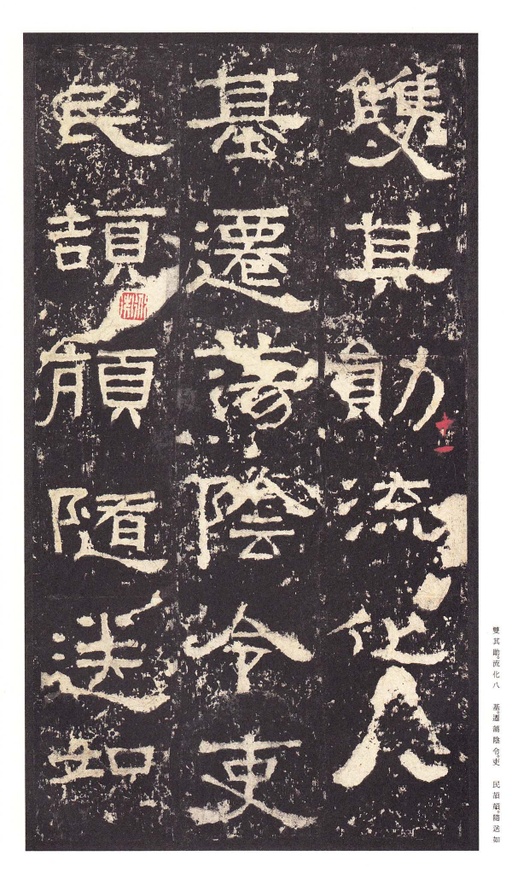 雙其勛流化八
基遷蕩陰令吏
民頡頏隨送如
雙其勛。流化八　基。遷蕩陰令。吏　民頡頏。隨送如